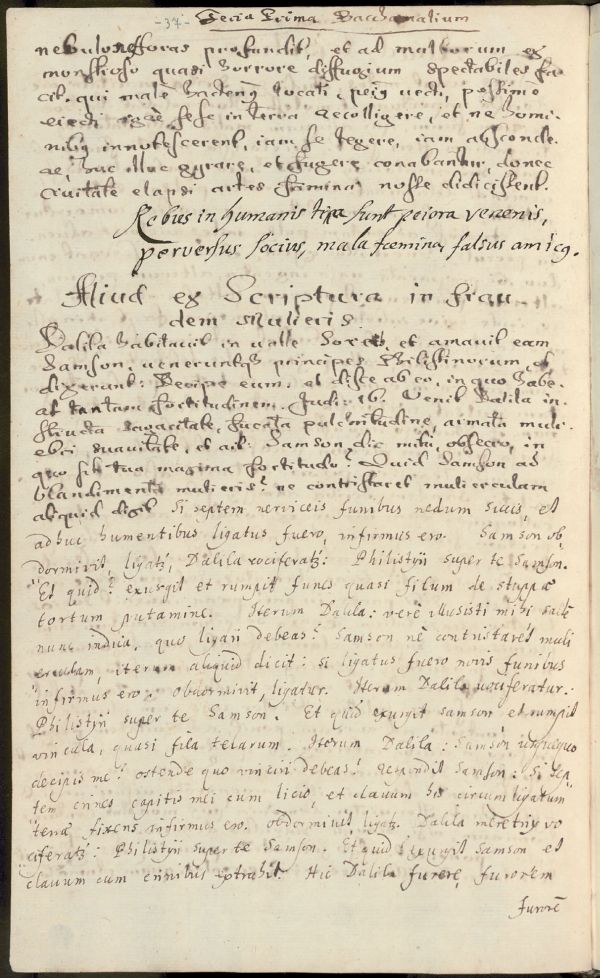 -37- Feria Prima Bacchanalium
nebulones foras profundit, et ad multorum ex
monstroso quasi horrore diffugium spectabiles fa
cit. qui male hactenus locati, peius vecti, pessimo
eiecti sese in terra recolligere, et ne homi-
nibus innotescerent, iam se tegere, iam absconde-
re, huc illuc gyrare, et fugere conabantur, donec
civitate elapsi artes fæminæ nosse didicissent.
Rebus in humanis tria sunt peiora venenis,
perversus socius, mala fœmina, falsus amicus.
Aliud ex Scriptura in frau-
dem Mulieris.
Dalila habitavit in valle Soreth, et amavit eam
Samson, veneruntque principes Philistinorum, et
dixerunt: Decipe eum, et disce ab eo, in quo habe-
at tantam fortitudinem. Judic: 16. Venit Dalila in-
structa sagacitate, fucata pulchritudine, armata muli-
ebri suavitate, et ait: Samson dic mihi, obsecro, in
quo sit tua maxima fortitudo? Quid Samson ad
blandimenta mulieris? ne contristaret mulierculam
aliquid digit Si septem nerviceis funibus nedum siccis, et
adhuc humentibus ligatus fuero, infirmus ero. Samson ob,
dormivit, ligatz, Dalila vociferatz: Philistÿn super te Samson.
Et quid? exurgit et rumpit funes quasi filum de stuppæ
tortum putamine. Iterum Dalila: verè illusisti mihi
nunc indica, quo ligari debeas? Samson nè contristaret muli
erculam, iterum aliquid dicit: si ligatus fuero novis funibus
infirmus ero. obdormivit, ligatur. Iterum Dalila vociferatur:
Philistÿn super te Samson. Et quid exurgit samson et rumpit
vincula, quasi fila telarum. Iterum Dalila: Samson usquequo
decipis me? ostende quo vinciri debeas? respondit Samson: Si sep
tem crines capitis mei cum licio, et clavum his circumligatum
terræ fixeris infirmus ero. obdormivit ligatz. Dalila meretrix vo
ciferatz: Philistÿn super te Samson. Et quid? exurgit Samson et
clavum cum crinibus extrahit. Hic Dalila furere, furorem
furorē